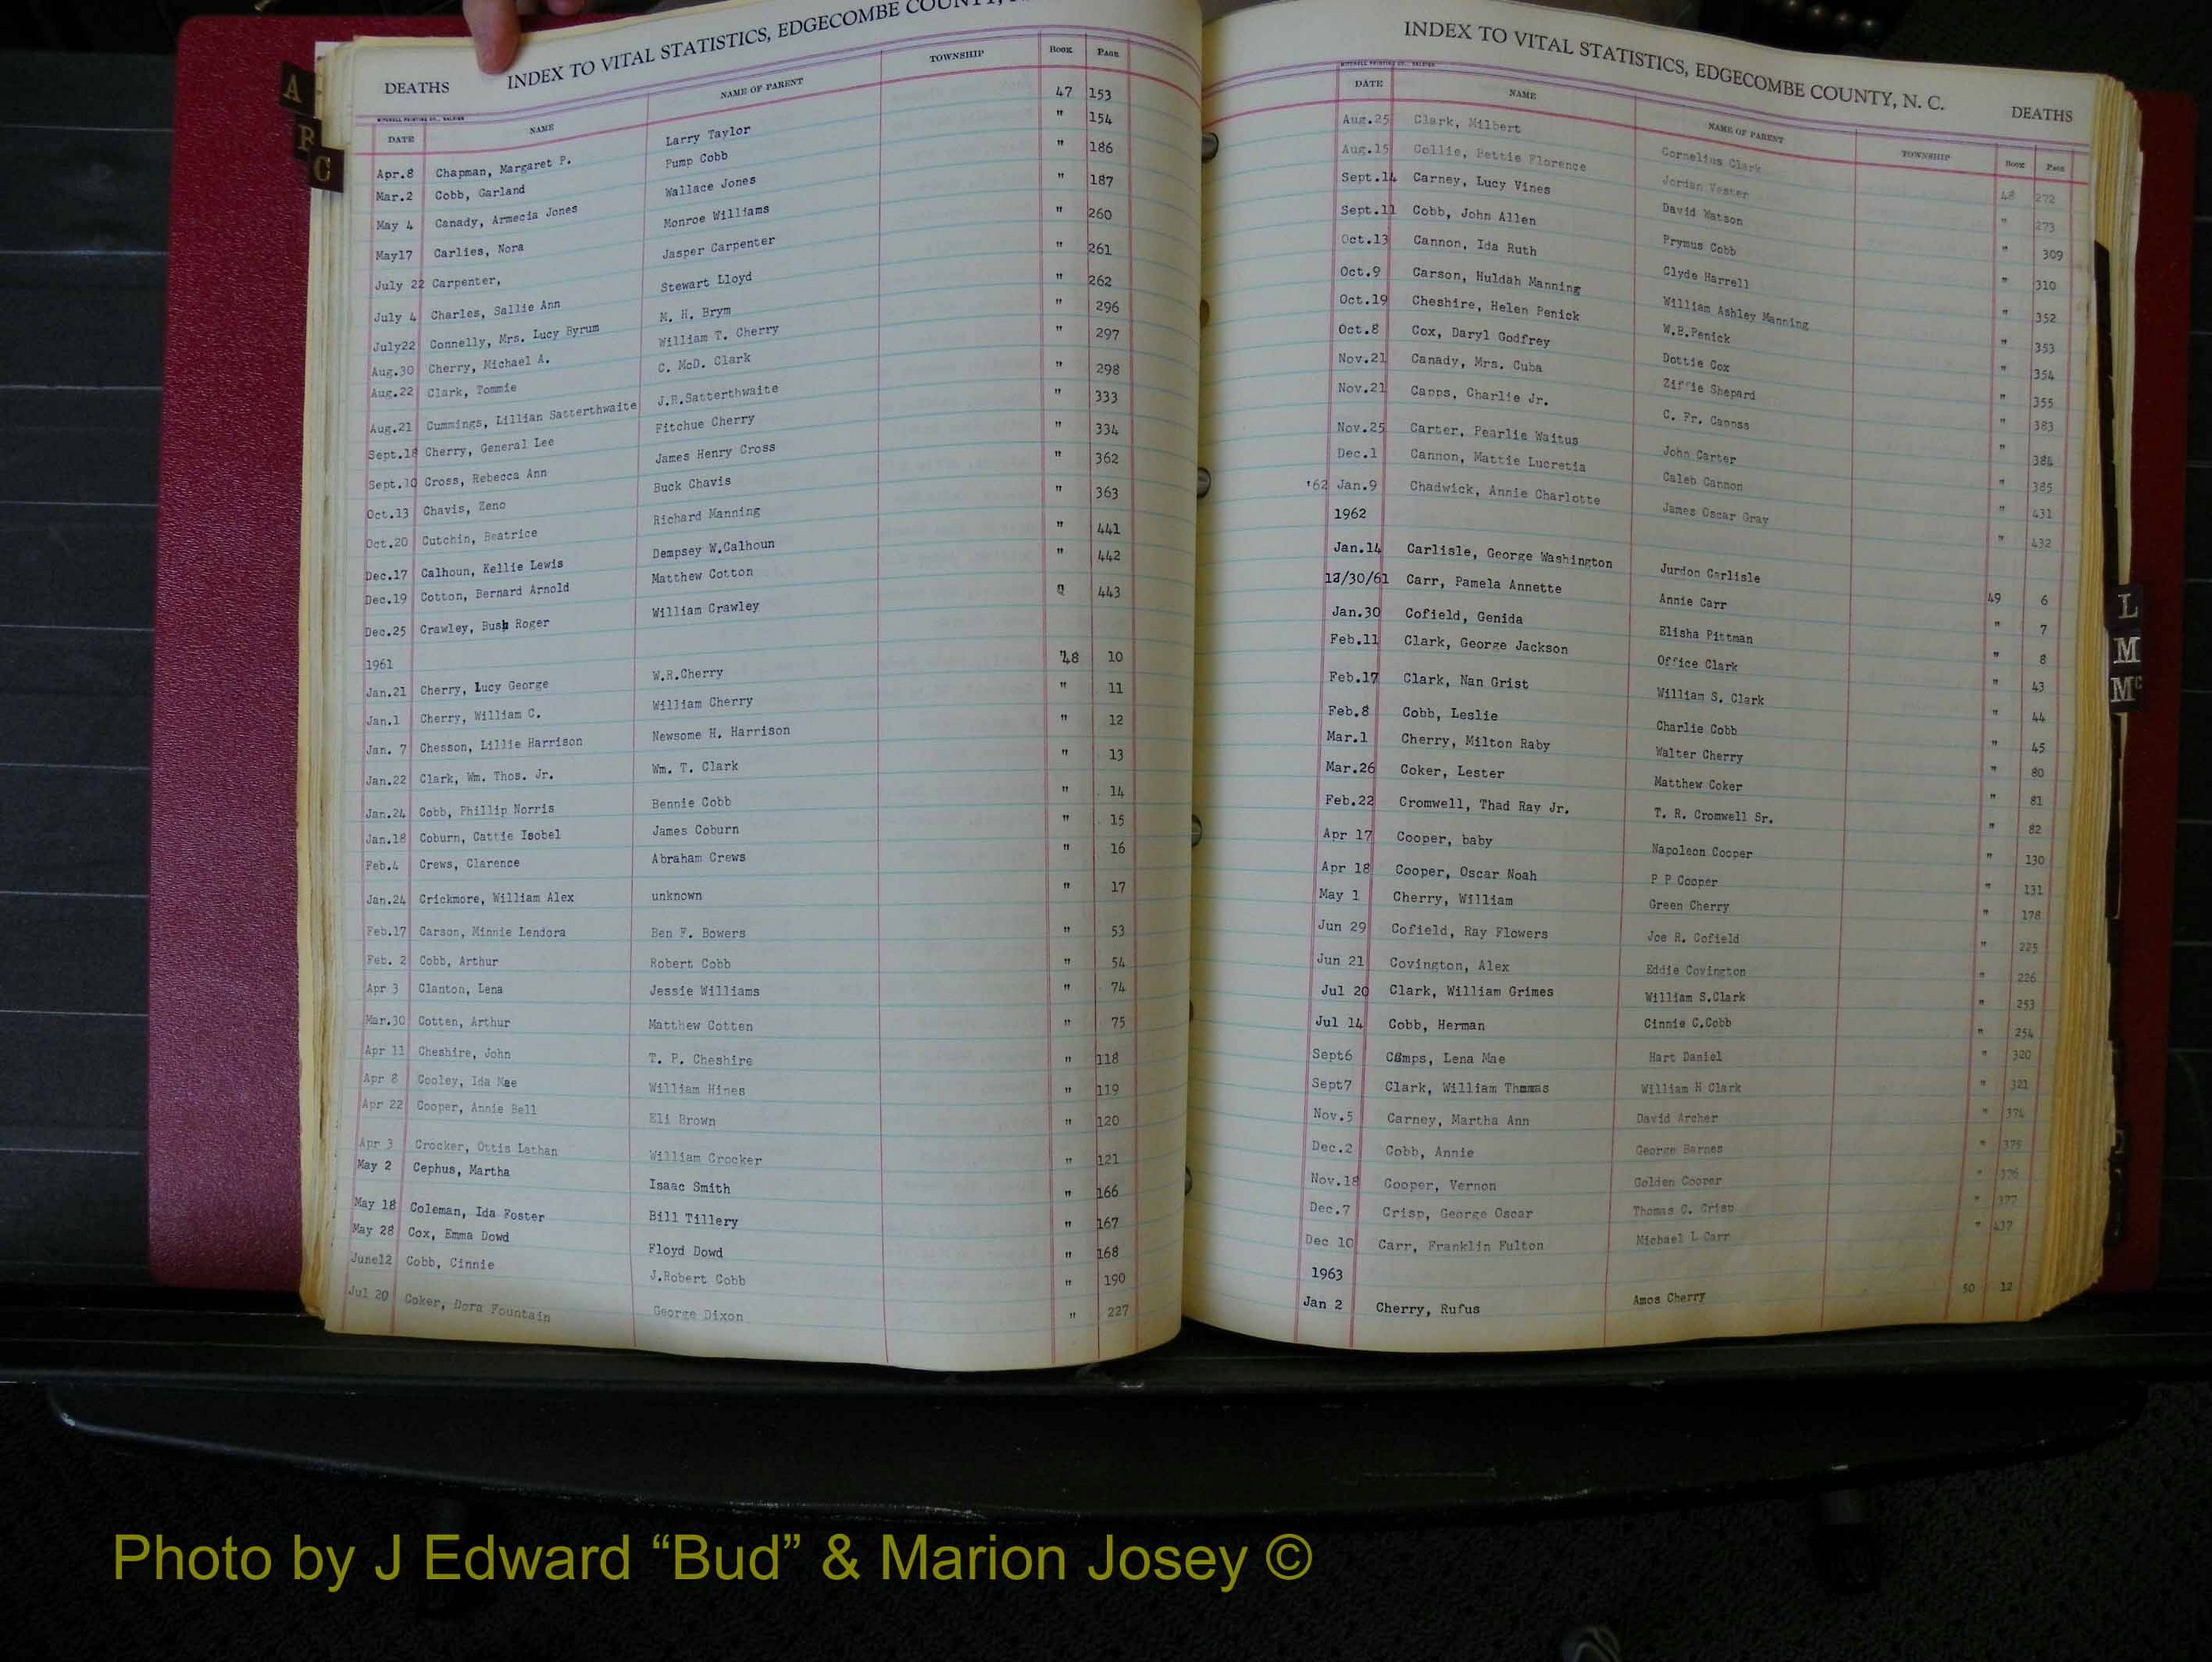 DEATHS INDEX TO VITAL STATISTICS, EDGECOMBE COUNTY,
DATE NAME NAME OF PARENT TOWNSHIP BOOK PAGE
Apr.8 Chapman, Margaret P. Larry Taylor 47 153
Mar.2 Cobb, Garland Pump Cobb " 154
May 4 Canady, Armecia Jones Wallace Jones " 186
May17 Carlies, Nora Monroe Williams " 187
July 22 Carpenter, Jasper Carpenter " 260
July 4 Charles, Sallie Ann Stewart Lloyd " 261
July22 Connelly, Mrs. Lucy Byrum M. H. Brym " 262
Aug.30 Cherry, Michael A. William T. Cherry " 296
Aug.22 Clark, Tommie C. McD. Clark " 297
Aug.21 Cummings, Lillian Satterthwaite J.R.Satterthwaite " 298
Sept.18 Cherry, General Lee Fitchue Cherry " 333
Sept.10 Cross, Rebecca Ann James Henry Cross " 334
Oct.13 Chavis, Zeno Buck Chavis " 362
Oct.20 Cutchin, Beatrice Richard Manning " 363
Dec.17 Calhoun, Kellie Lewis Dempsey W.Calhoun " 441
Dec.19 Cotton, Bernard Arnold Matthew Cotton " 442
Dec.25 Crawley, Bush Roger William Crawley 443
1961
Jan.21 Cherry, Lucy George W.R.Cherry "48 10
Jan.1 Cherry, William C. William Cherry " 11
Jan. 7 Chesson, Lillie Harrison Newsome H. Harrison " 12
Jan.22 Clark, Wm. Thos. Jr. Wm. T. Clark " 13
Jan.24 Cobb, Phillip Norris Bennie Cobb " 14
Jan.18 Coburn, Cattie Isobel James Coburn " 15
Feb.4 Crews, Clarence Abraham Crews " 16
Jan.24 Crickmore, William Alex unknown " 17
Feb.17 Carson, Minnie Lendora Ben F. Bowers " 53
Feb. 2 Cobb, Arthur Robert Cobb " 54
Apr 3 Clanton, Lena Jessie Williams " 74
Mar.30 Cotten, Arthur Matthew Cotten " 75
Apr 11 Cheshire, John T. P. Cheshire " 118
Apr 8 Cooley, Ida Mae William Hines " 119
Apr 22 Cooper, Annie Bell Eli Brown " 120
Apr 3 Crocker, Ottis Lathan William Crocker " 121
May 2 Cephus, Martha Isaac Smith " 166
May 18 Coleman, Ida Foster Bill Tillery " 167
May 28 Cox, Emma Dowd Floyd Dowd " 168
June12 Cobb, Cinnie J.Robert Cobb " 190
Jul 20 Coker, Dora Fountain George Dixon " 227
INDEX TO VITAL STATISTICS, EDGECOMBE COUNTY, N. C. DEATHS
DATE NAME NAME OF PARENT TOWNSHIP BOOK PAGE
Aug.25 Clark, Milbert Cornelius Clark 48 272
Aug.15 Collie, Bettie Florence Jordan Vester " 273
Sept.14 Carney, Lucy Vines David Watson " 309
Sept.11 Cobb, John Allen Prymus Cobb " 310
Oct.13 Cannon, Ida Ruth Clyde Harrell " 352
Oct.9 Carson, Huldah Manning William Ashley Manning " 353
Oct.19 Cheshire, Helen Penick W.B.Penick " 354
Oct.8 Cox, Daryl Godfrey Dottie Cox " 355
Nov.21 Canady, Mrs. Cuba Ziffie Shepard " 383
Nov.21 Capps, Charlie Jr. C. Fr. " 384
Nov.25 Carter, Pearlie Waitus John Carter " 385
Dec.1 Cannon, Mattie Lucretia Caleb Cannon " 431
'62 Jan.9 Chadwick, Annie Charlotte James Oscar Gray " 432
1962
Jan.14 Carlisle, George Washington Jurdon Carlisle 49 6
12/30/61 Carr, Pamela Annette Annie Carr " 7
Jan.30 Cofield, Genida Elisha Pittman " 8
Feb.11 Clark, George Jackson Office Clark " 43
Feb.17 Clark, Nan Grist William S. Clark " 44
Feb.8 Cobb, Leslie Charlie Cobb " 45
Mar.1 Cherry, Milton Raby Walter Cherry " 80
Mar.26 Coker, Lester Matthew Coker " 81
Feb.22 Cromwell, Thad Ray Jr. T. R. Cromwell Sr. " 82
Apr 17 Cooper, baby Napoleon Cooper " 130
Apr 18 Cooper, Oscar Noah P P Cooper " 131
May 1 Cherry, William Green Cherry " 178
Jun 29 Cofield, Ray Flowers Joe R. Cofield " 225
Jun 21 Covington, Alex Eddie Covington " 226
Jul 20 Clark, William Grimes William S.Clark " 253
Jul 14 Cobb, Herman Cinnie C.Cobb " 254
Sept6 Camps, Lena Mae Hart Daniel " 320
Sept7 Clark, William Thomas William H Clark " 321
Nov.5 Carney, Martha Ann David Archer " 374
Dec.2 Cobb, Annie George Barnes " 375
Nov.18 Cooper, Vernon Golden Cooper " 376
Dec.7 Crisp, George Oscar Thomas C. Crisp " 377
Dec 10 Carr, Franklin Fulton Michael L Carr " 437
1963
Jan 2 Cherry, Rufus Amos Cherry 50 12
A
B
C
L
M
Mc
Photo by J Edward “Bud” & Marion Josey ©